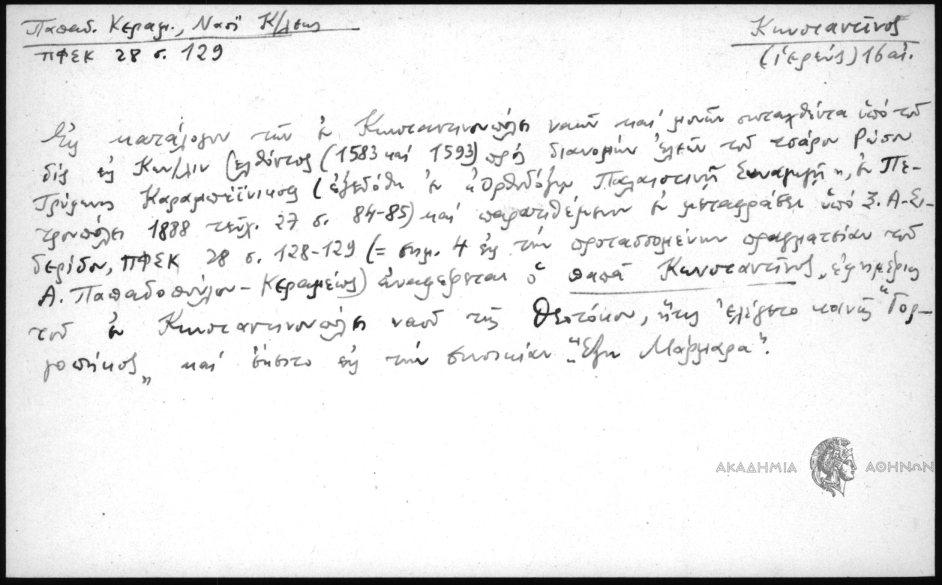 Παπαδ. Κεραμ., Ναοί Κ/λεως
ΠΦΣΚ 28 σ. 129
Κωνσταντῖνος
(ἱερεύς) 16 αἰ.
Εἰς κατάλογον τῶν ἐν Κωνσταντινουπόλει ναῶν καί μονῶν συνταχθέντα ὑπό τοῦ
δίς εἰς Κων/λιν (ἐλθόντος (1583 καί 1593) πρός διανομήν ἐλεῶν τοῦ τσάρου Ρώσου
Τρύφωνος Καραμπέϊνικωφ (ἐξεδόθη ἐν "Ὀρθοδόξῳ Παλαιστινῇ Συναγωγῇ", ἐν Πε-
τρουπόλει 1888 τεῦχ. 27 σ. 84-85) καί παρατιθέμενον ἐν μεταφράσει ὑπό Ξ. Α. Σι-
δερίδου, ΠΦΣΚ 28 σ. 128-129 (= σημ. 4 εἰς τήν προτασσομένην πραγματείαν τοῦ
Α. Παπαδοπούλου-Κεραμέως) ἀναφέρεται ὁ παπᾶ Κωνσταντῖνος, ἐφημέριος
τοῦ ἐν Κωνσταντινουπόλει ναοῦ τῆς Θεοτόκου, ἥτις ἐλέγετο κοινῶς "Γορ-
γοεπήκοος" καί ἔκειτο εἰς τήν συνοικίαν "Ἔξω Μάρμαρα".
ΑΚΑΔΗΜΙΑ ΑΘΗΝΩΝ